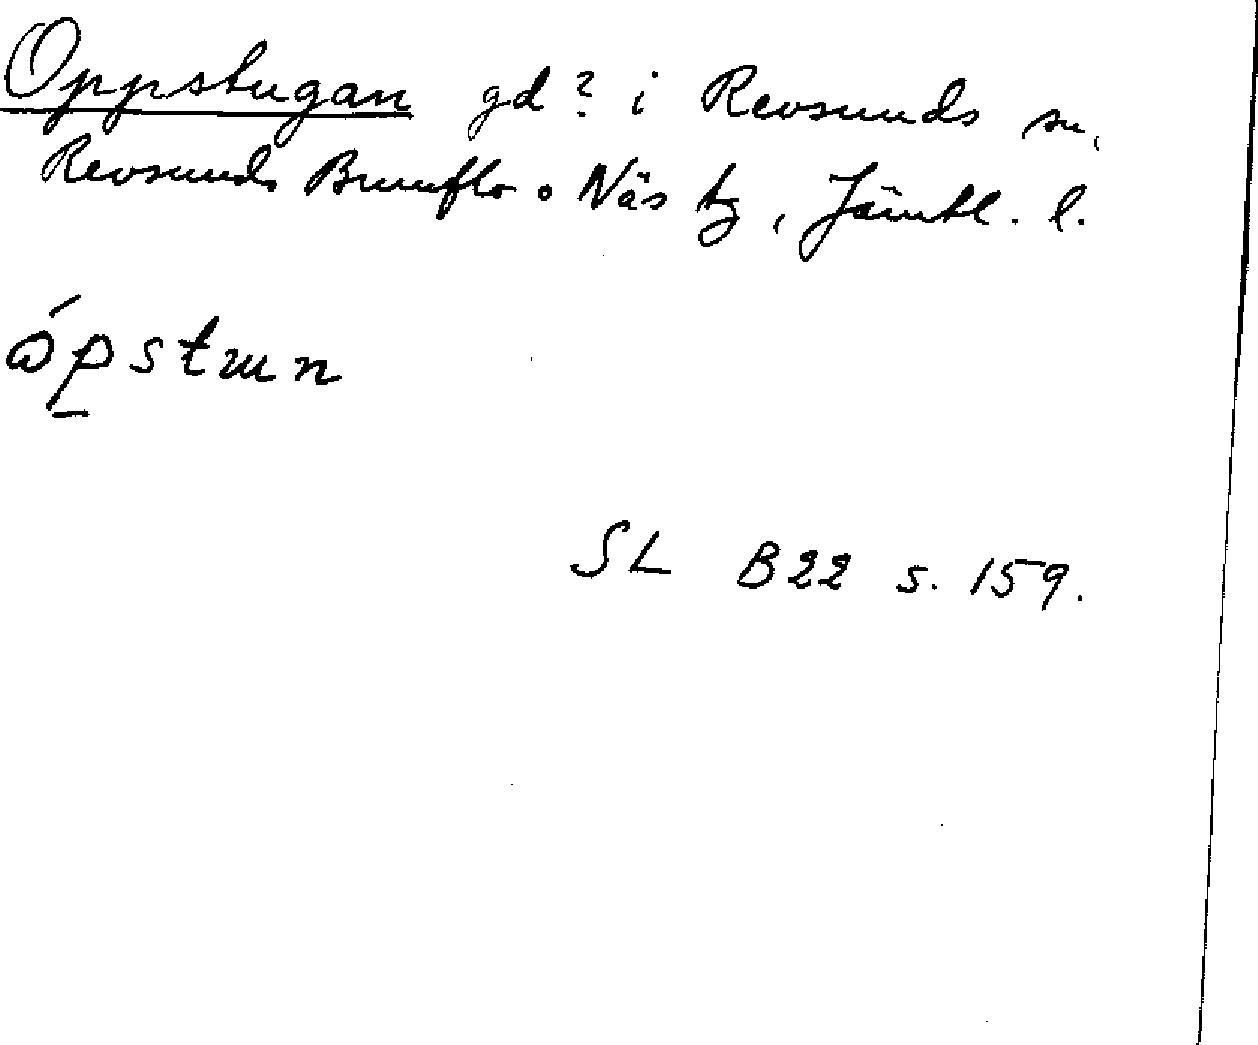 Oppstugan gd? i Revsunds sn,
Revsunds Brunflo o Näs tg, Jämtl. l.
ópstun
SL B22 s. 159.